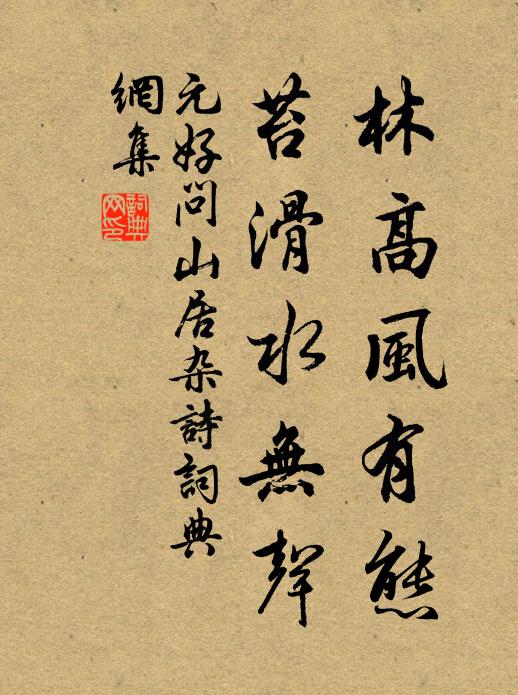 林高風有態
苔滑水無聲
元好問山居杂詩詞典
網集
詞典
网印